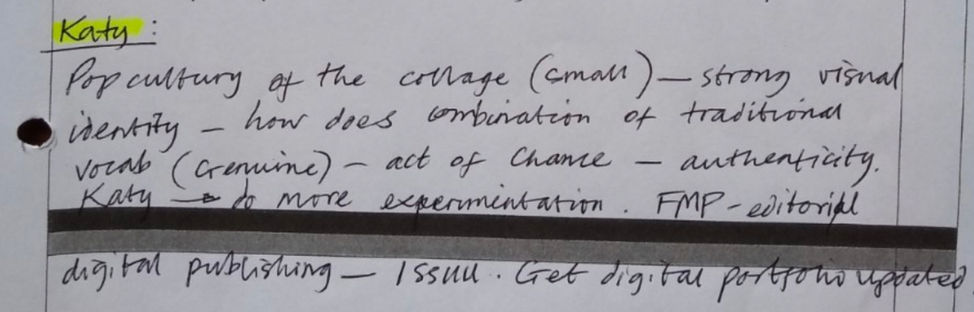 Katy :
Pop cultury of the collage (small) — strong visual
identity — how does combination of traditional
vocab (Genuine) — act of Chance — authenticity.
Katy → do more experimentation. FMP - editorial
digital publishing — Issuu. Get digital portfolio updated